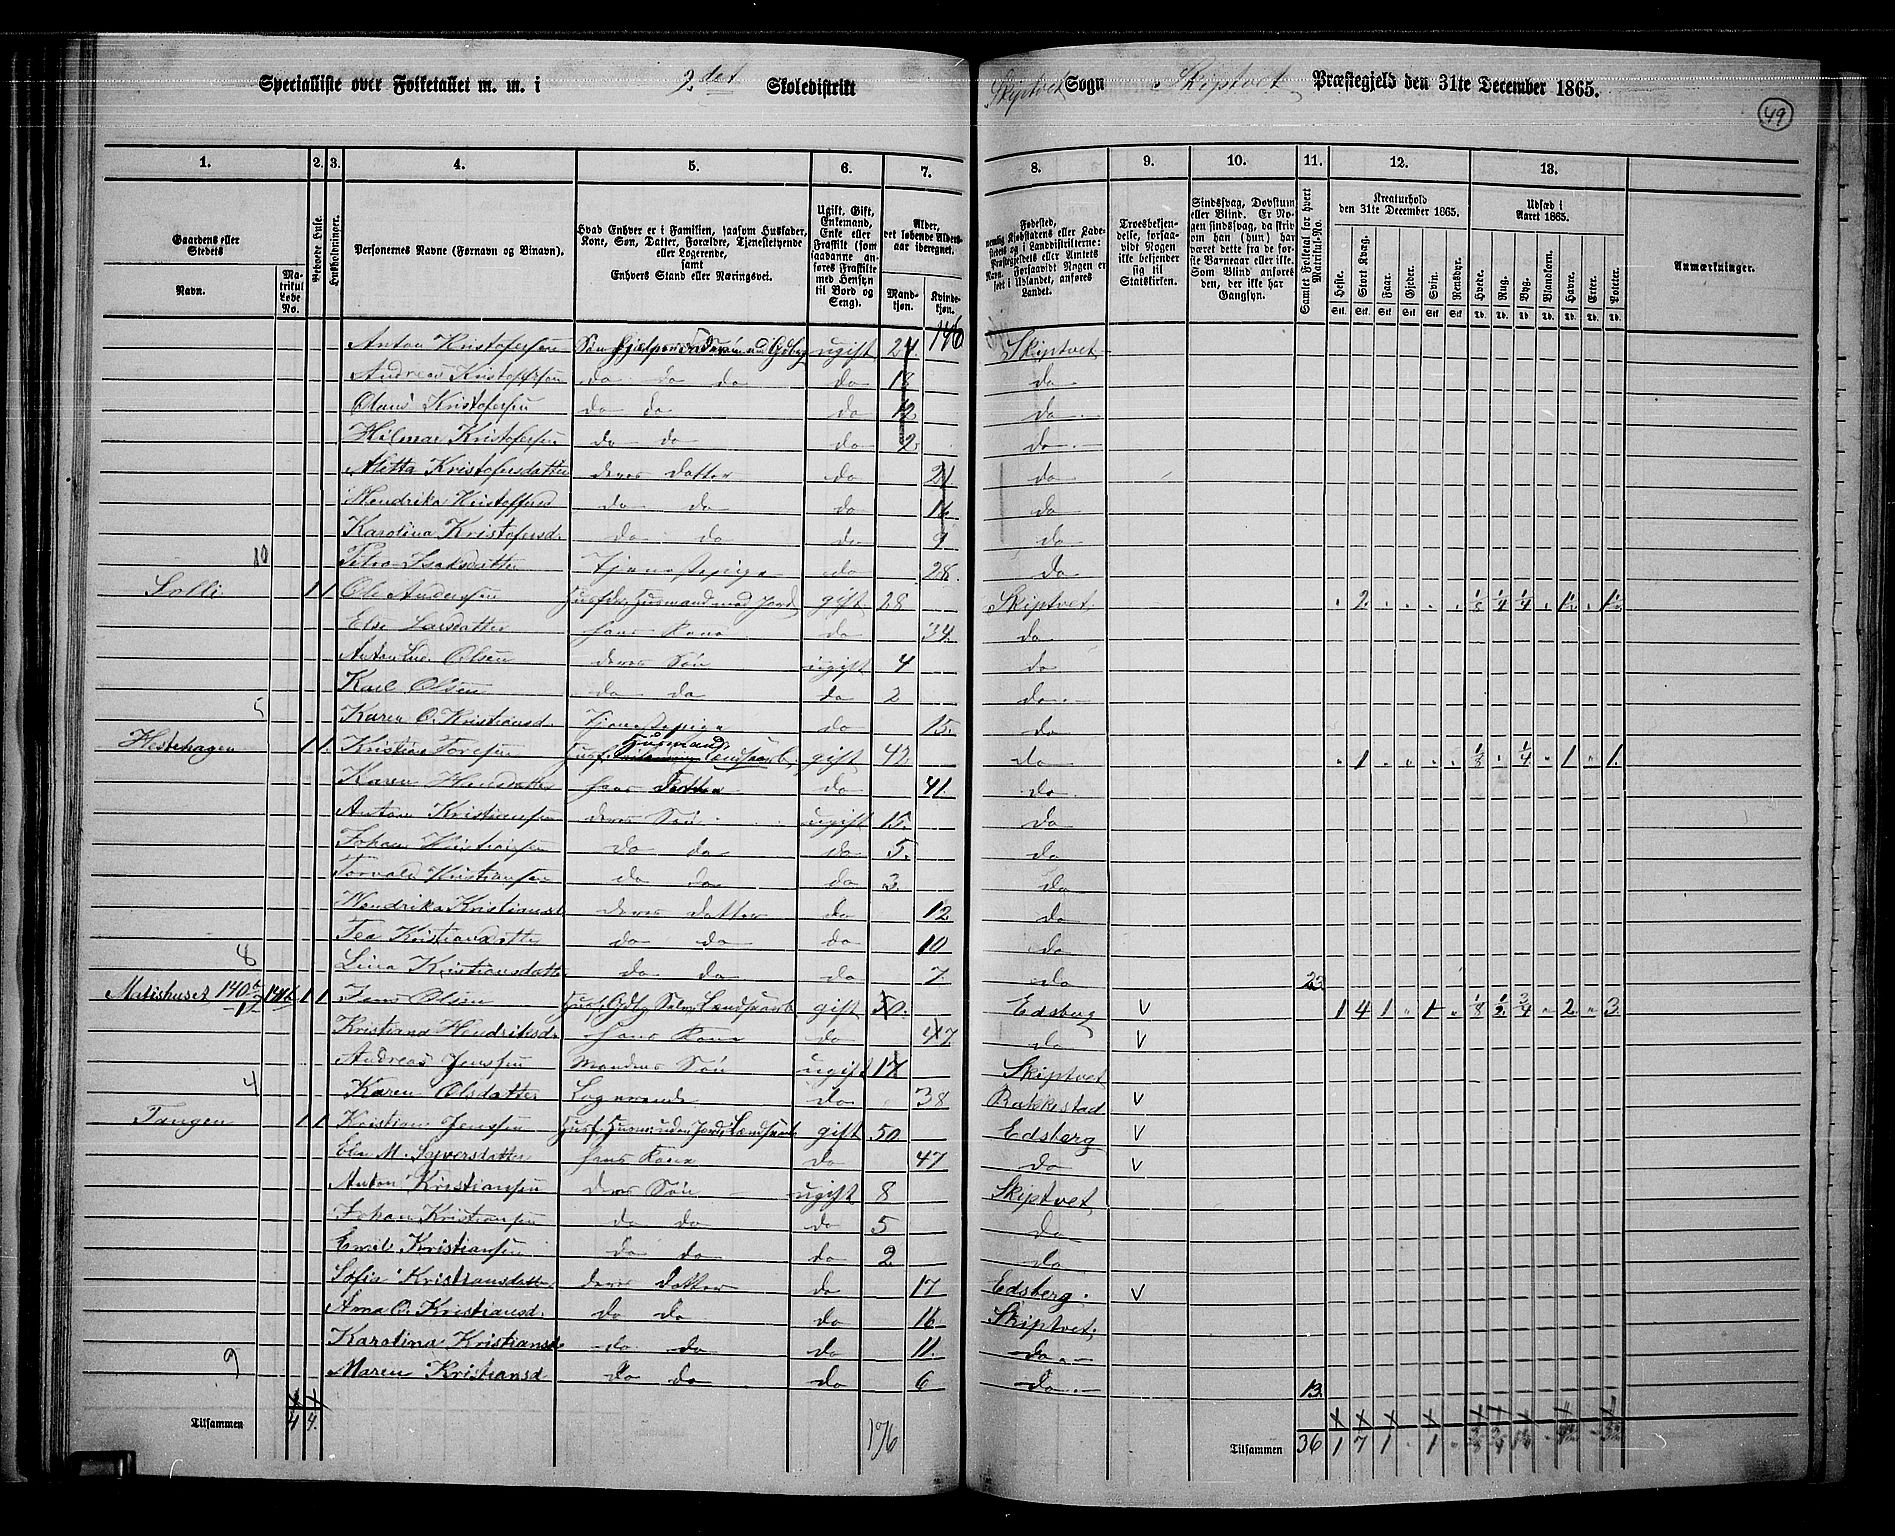 Specialliste over Folketallet m. m. i 2det Skoledistrikt Skiptvet Sogn Skiptvet Præstegjeld den 31te December 1865.
49
1. 2. 3. 4. 5. 6. 7. 8. 9. 10. 11. 12. 13.
Gaardens eller Stedets
Navn.
Matrikul Løbe No.
Beboede Huse.
Husholdninger.
Personernes Navne (Fornavn og Binavn).
Hvad Enhver er i Familien, saasom Husfader, Kone, Søn, Datter, Forældre, Tjenestetyende eller Logerende, samt Enhvers Stand eller Næringsvei.
Ugift, Gift, Enkemand, Enke eller Fraskilt (som saadanne anføres Fraskilte med Hensyn til Bord og Seng).
Alder, det løbende Aldersaar iberegnet.
Mandkjøn.
Kvindekjøn.
Troesbekjendelse, forsaavidt Nogen ikke bekjender sig til Statskirken.
Sindssvag, Døvstum eller Blind. Er Nogen sindssvag, da skriv om han (hun) har været dette fra de første Barneaar eller ikke. Som Blind anføres den, der ikke har Gangsyn.
Samlet Folketal for hvert Matrikul-No.
Kreaturhold den 31te December 1865.
Heste. Stort Kvæg. Faar. Gjeder. Svin. Rensdyr.
Udsæd i Aaret 1865.
Hvede. Rug. Byg. Blandkorn. Havre. Erter. Poteter.
Anmærkninger.
146
Anton Kristofersen ugift 24 Skiptvet
Andreas Kristofersen do do do do 18 do
Olaus Kristofersen do do do 12 do
Hilmar Kristofersen do do do 2 do
Kristofersdatter deres datter do 21 do
Hendrika Kristoffersd do do do 16 do
Karolina Kristofersd. do do do 9 do
10 Petra Isaksdatter Tjenestepige do 28 do
Solli 1 1 Ole Andersen Husfdr. Husmand med Jord gift 28 Skiptvet 2 1/8 1/4 1/4 1½ 1½
Else Larsdatter hans Kone do 34 do
Anton Lud. Olsen deres Søn ugift 4 do
Karl Olsen do do do 2 do
5 Karen O. Kristiansd. Tjenestepige do 15 do
Hestehagen 1 1 Kristian Toresen Husf. Husmand gift 42 do 1 1/8 1/4 1 1
Karen do 41 do
Anton Kristiansen deres Søn ugift 15 do
Johan Kristiansen do do do 5 do
Torvald Kristiansen do do do 3 do
Hendrika Kristiansd. deres datter do 12 do
Tea Kristiansdatter do do do 10 do
8 Lina Kristiansdatter do do do 7 do 23
Matishuset 140b 1 1 Jens Olsen gift 50 Edsberg V 1 4 1 1 1/8 1/2 3/4 2 3
Kristiana Hendriksd. hans Kone do 47 do V
Andreas Jenssen Mandens Søn ugift 17 Skiptvet
4 Karen Olsdatter Logerende do 38 Rakkestad V
Tangen 1 1 Kristian Jenssen Husf. Husm. uden Jord gift 50 Edsberg V
Else M. Syversdatter hans Kone do 47 do V
Anton Kristiansen deres Søn ugift 8 Skiptvet
Johan Kristiansen do do do 5 do
Emil Kristiansen do do do 2 do
Sofie Kristiansdatter deres datter do 17 Edsberg V
Anna O. Kristiansd. do do do 16 Skiptvet
Karolina Kristiansd. do do do 11 do
9 Maren Kristiansd. do do do 6 do 13
Tilsammen 4 4 176 Tilsammen 36 1 7 1 1